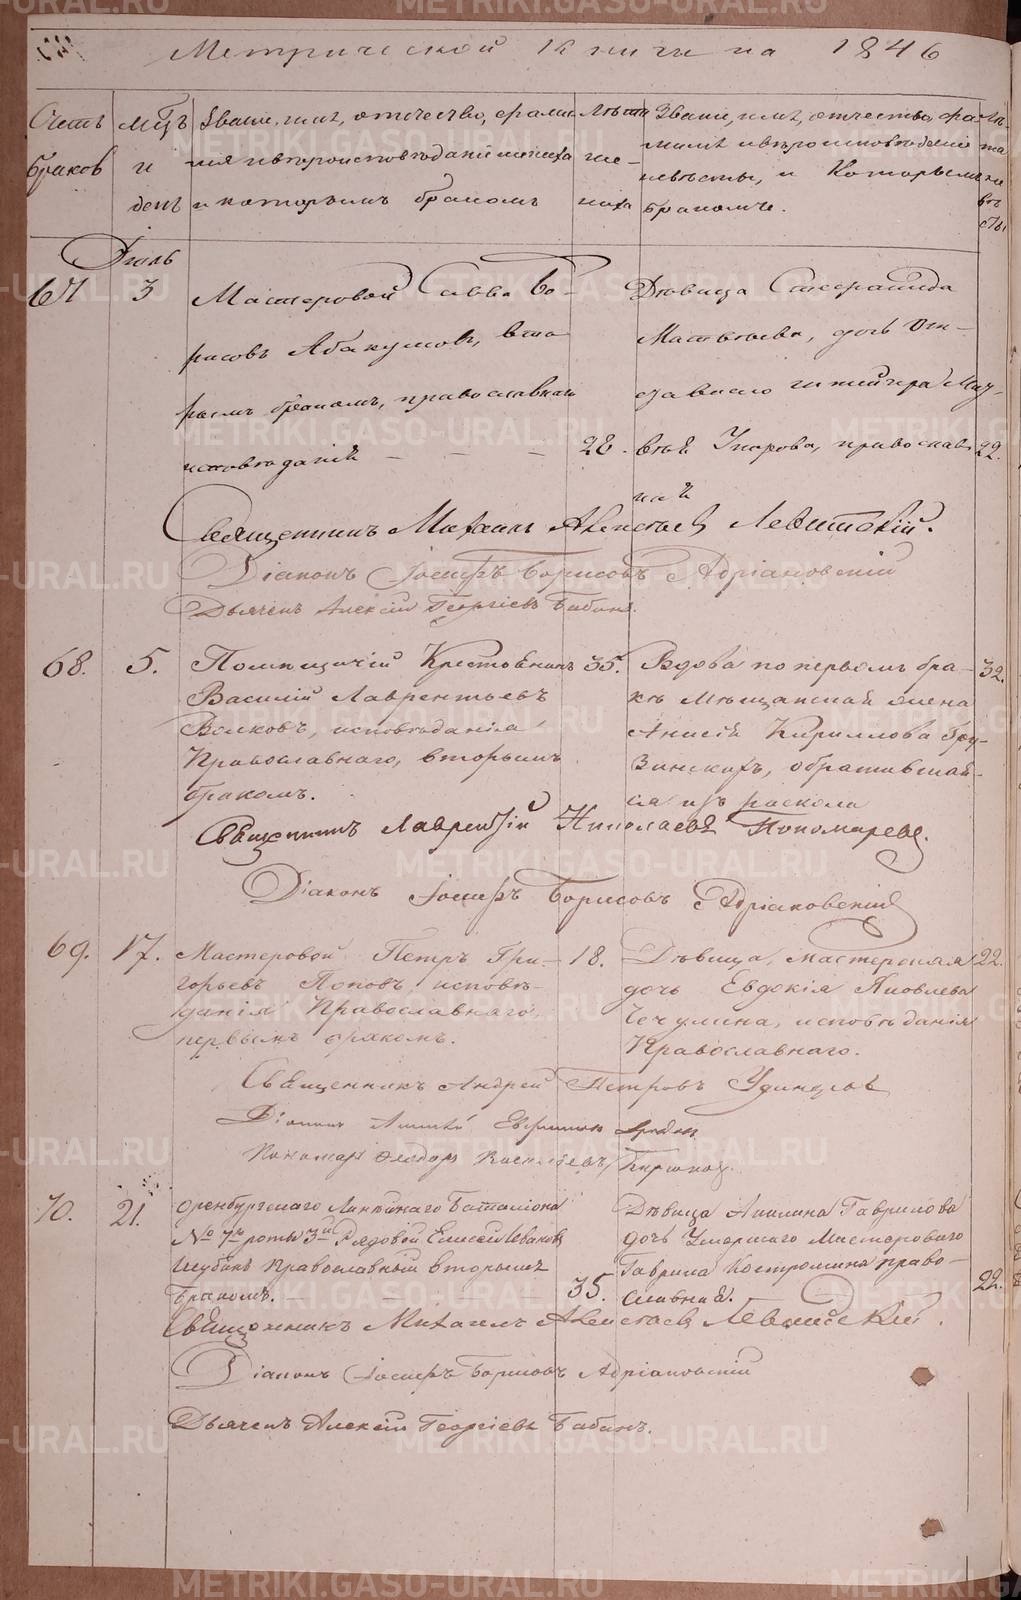 Метрической книги на 1846
Счетъ браковъ
мѣсяцъ и день
Званіе, имя, отчество, фами-
лія и вѣроисповѣданіе жениха
и которымъ бракомъ
Лѣта
же-
ниха
Званіе, имя, отчество, фа-
милія и вѣроисповѣданіе
невѣсты, и которымъ
бракомъ.
Лѣ-
та
не
вѣ
сты
Іюль
67 3
Мастеровой Савва Бо-
рисовъ Абакумовъ, вто
рымъ бракомъ, православнаго
исповѣданія 28.
Дѣвица Стефанида
Матвѣева, дочь
Мат-
вѣя православ 22.
ная
Священникъ Михаилъ Алексѣевъ Левитскій.
Діаконъ Іосифъ Борисовъ Адріановскій
Дьячекъ Алексій Георгіевъ Бабинъ.
68. 5.
Помѣщичій Крестьянинъ 35.
Василій Лаврентьевъ
Волковъ, исповѣданія
Православнаго, вторымъ
бракомъ.
Вдова по первомъ бра- 32.
кѣ Мѣщанская жена
Анисія Кириллова Гру-
зинскихъ, обратившая-
ся изъ раскола
Священникъ Лаврентій Николаевъ Пономаревъ.
Діаконъ Іосифъ Борисовъ Адріановскій
69. 17.
Мастеровой Петръ Гри- 18.
горьевъ Поповъ, исповѣ-
данія Православнаго
первымъ бракомъ.
Дѣвица, мастерская 22.
дочь Евдокія Яковлева
Чечулина, исповѣданія
Православнаго.
Священникъ Андрей Петровъ Удинцовъ
Діаконъ
Пономарь Ѳеодоръ Васильевъ
70. 21.
Оренбургскаго Линѣйнаго Баталіона
№ 7й роты 3й Рядовой Елисей Ивановъ
Шубинъ Православный вторымъ
бракомъ. 35.
Дѣвица Акилина Гаврилова
дочь Умершаго Мастероваго
Гаврила Костромина право-
славная. 22.
Священникъ Михаилъ Алексѣевъ Левитскій.
Діаконъ Іосифъ Борисовъ Адріановскій
Дьячекъ Алексій Георгіевъ Бабинъ.
METRIKI.GASO-URAL.RU